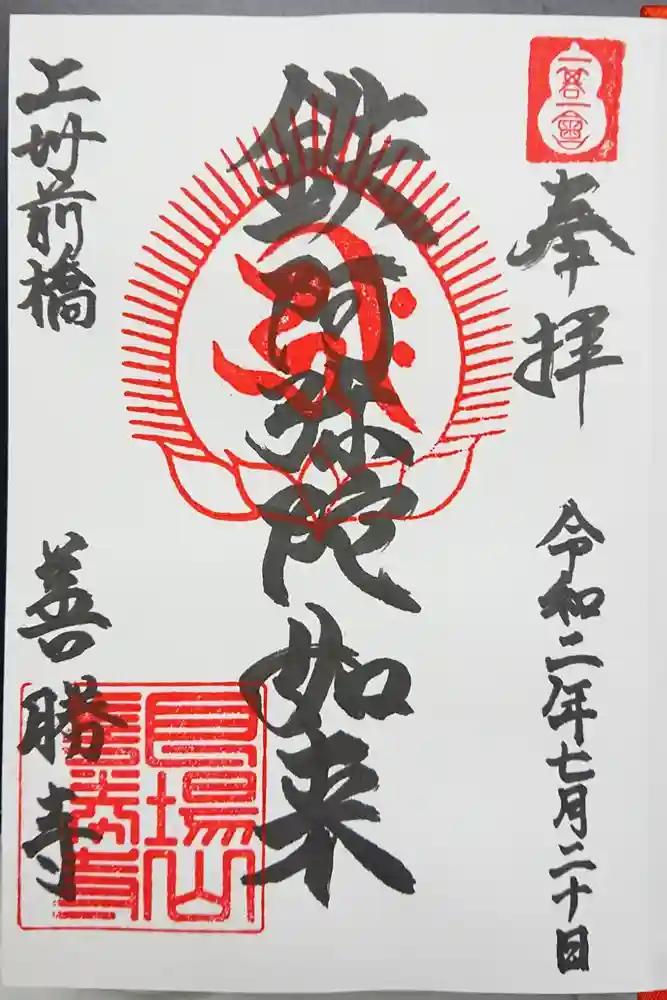 奉拝
令和二年七月二十日
鐵阿弥陀如来
上州前橋
善勝寺
場山
善勝寺